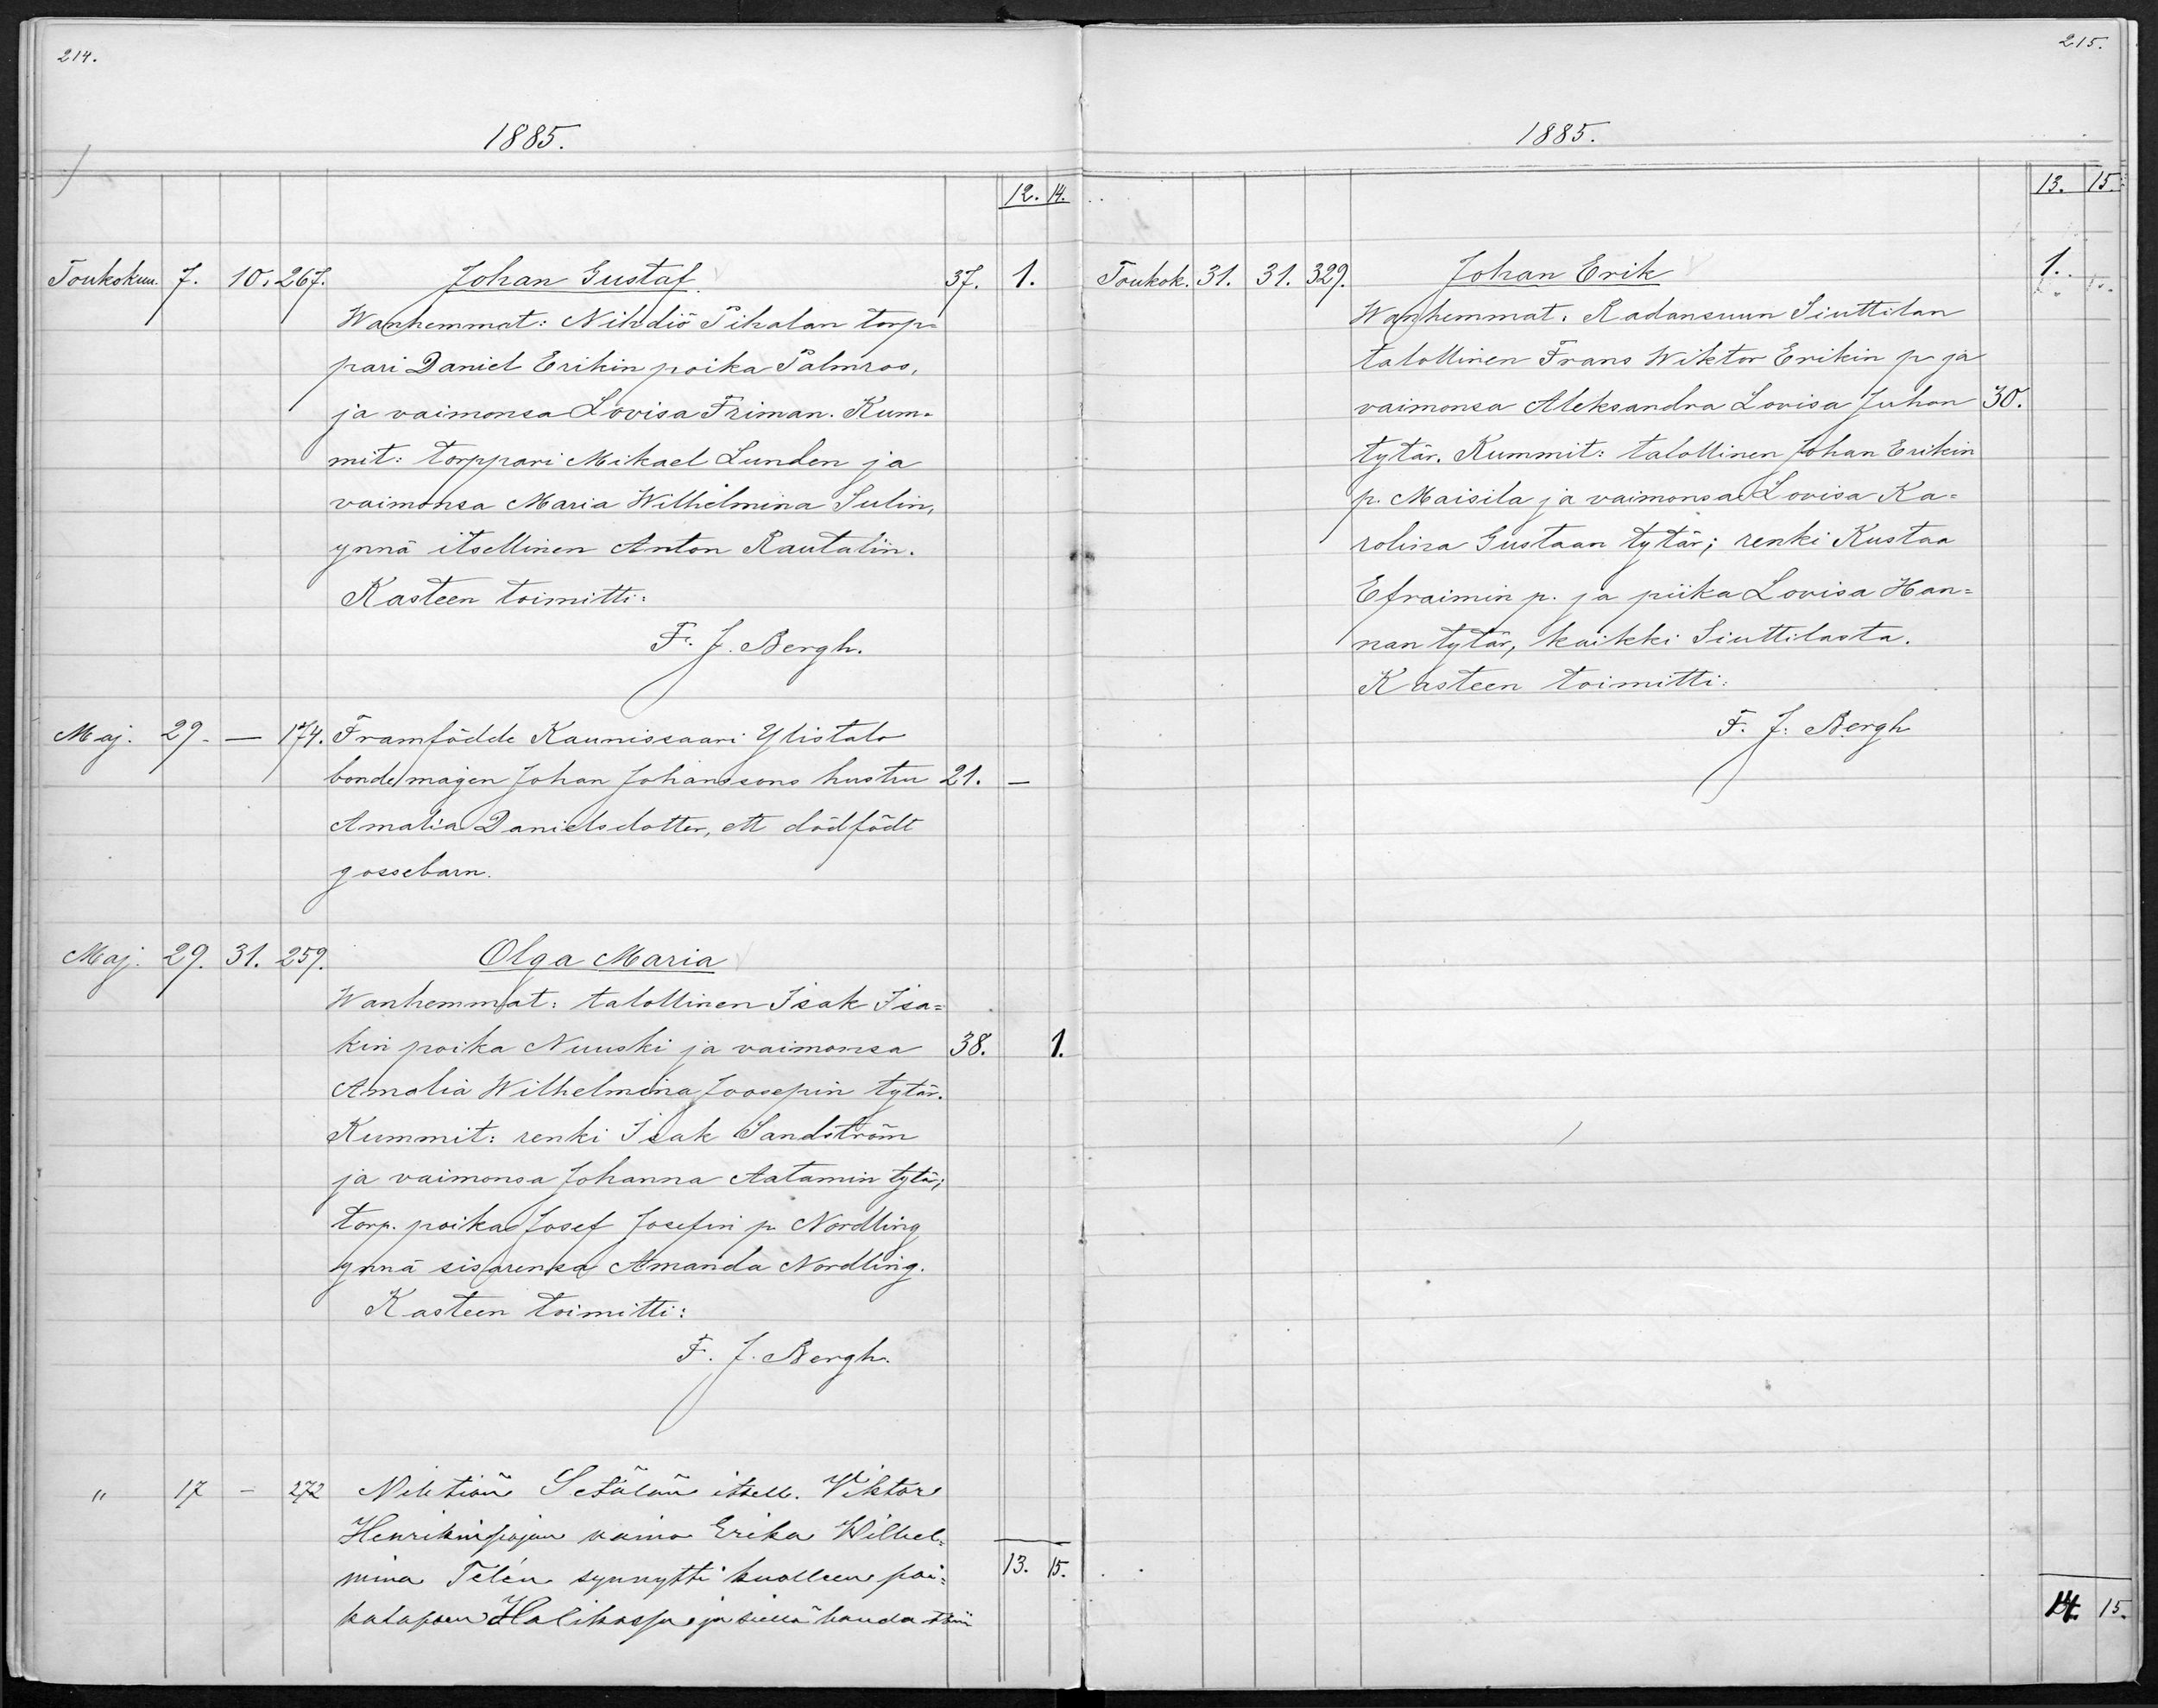 214.
1885.
12. 14.
Toukokuu. 7. 10. 267. Johan Gustaf 37. 1.
Wanhemmat: Nihdiö Pihalan torp-
pari Daniel Erikin poika Palmros,
ja vaimonsa Lovisa Friman. Kum-
mit: torppari Mikael Lunden ja
vaimonsa Maria Wilhelmina Sulin,
ynnä itsellinen Anton Rautalin.
Kasteen toimitti:
F. J. Bergh.
Maj. 29. — 174. Framfödde Kaunissaari Ylistalo
bonde/magen Johan Johanssons hustru 21. —
Amalia Danielsdotter, ett dödfödt
gossebarn.
Maj. 29. 31. 259. Olga Maria
Wanhemmat: talollinen Isak Isa=
kin poika Nuuski ja vaimonsa 38. 1.
Amalia Wilhelmina Joosepin tytär.
Kummit: renki Isak Sandström
ja vaimonsa Johanna Aatamin tytär;
torp. poika Josef Josefin p. Nordling
ynnä sisarensa Amanda Nordling.
Kasteen toimitti:
F. J. Bergh.
" 17 — 272 Setälän itsell. Viktor
Henrikinpojan vaimo Erika Wilhel=
mina Telén synnytti kuolleen poi= 13. 15.
kalapsen Halikossa ja siellä haudattiin
215.
1885.
13. 15.
Toukok. 31. 31. 329. Johan Erik 1.
Wanhemmat: Radansuun Siuttilan
talollinen Frans Wiktor Erikin p. ja
vaimonsa Aleksandra Lovisa Juhon 30.
tytär. Kummit: talollinen Johan Erikin
p. Maisila ja vaimonsa Lovisa Ka=
rolina Gustaan tytär; renki Kustaa
Efraimin p. ja piika Lovisa Han=
nan tytär, kaikki Siuttilasta.
Kasteen toimitti:
F. J. Bergh
14. 15.